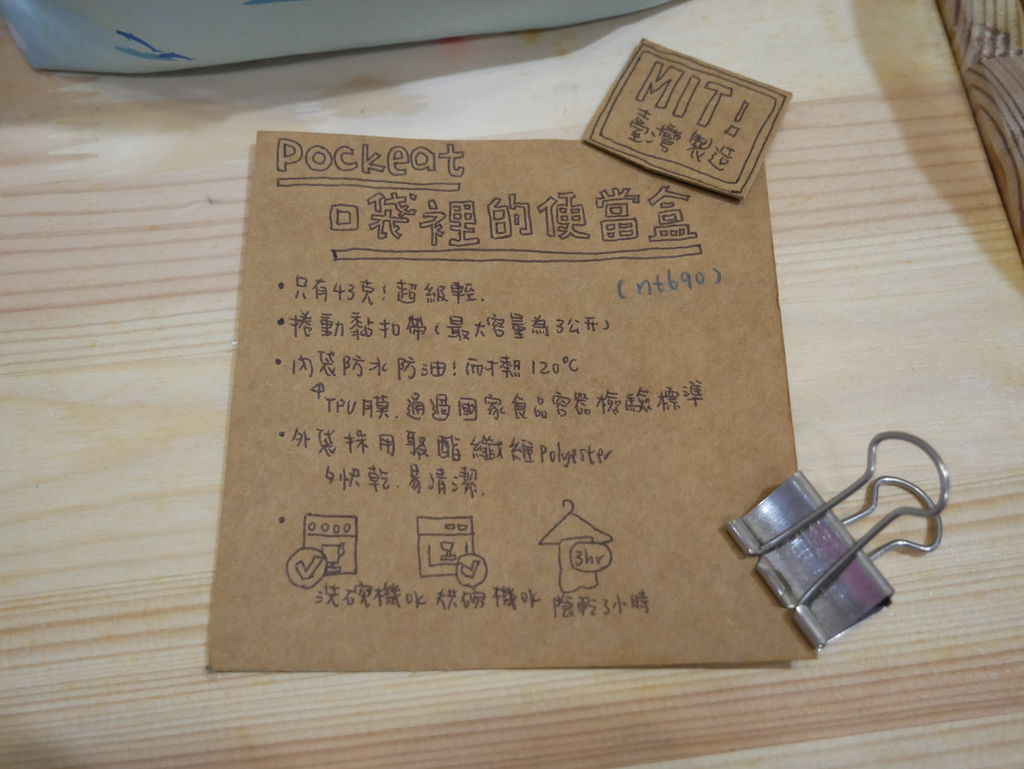 MIT!
臺灣製造
Pockeat
口袋裡的便當盒
(nt690)
•只有43克!超級輕.
•捲動黏扣帶(最大容量為3公升)
•內袋防水防油!耐熱120°C
TPU膜.通過國家食品容器檢驗標準
•外袋採用聚酯纖維Polyester
快乾.易清潔.
3hr
洗碗機ok 烘碗機ok 陰乾3小時